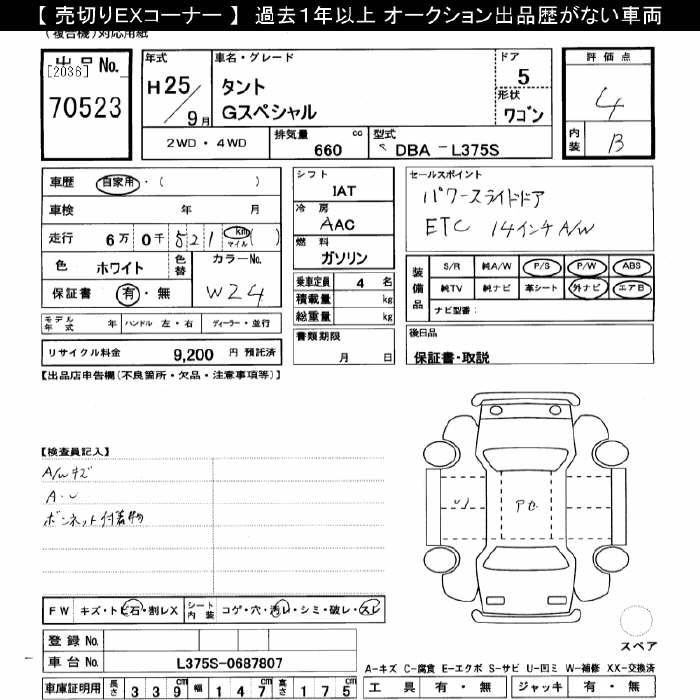 【 売切りEXコーナー 】 過去1年以上 オークション出品歴がない車両
(複合機)対応用紙
出品 No.
[2036]
70523
年式
H25/9月
車名・グレード
タント
Gスペシャル
ドア
5
形状
ワゴン
評価点
4
内装
B
2WD・4WD
排気量 cc
660
型式
DBA -L375S
車歴 自家用・( )
車検 年 月
走行 6万 0千 521 km マイル ( )
色 ホワイト
色替
カラーNo.
W24
保証書 有・無
シフト
IAT
冷房
AAC
燃料
ガソリン
乗車定員 4 名
積載量 kg
総重量 kg
書類期限
月 日
セールスポイント
パワースライドドア
ETC 14インチA/W
装備品
S/R 純A/W P/S P/W ABS
純TV 純ナビ 革シート 外ナビ エアB
ナビ型番:
後日品
保証書・取説
モデル年式 年 ハンドル 左・右 ディーラー・並行
リサイクル料金 9,200 円 預託済
【出品店申告欄(不良箇所・欠品・注意事項等)】
【検査員記入】
A/Wキズ
A・U
ボンネット付着物
FW キズ・トビ石・割レX シート内装 コゲ・穴・汚レ・シミ・破レ・スレ
登録 No.
車台 No. L375S-0687807
車庫証明用 長さ 339 cm 幅 147 cm 高さ 175 cm
スペア
A-キズ C-腐食 E-エクボ S-サビ U-凹ミ W-補修 XX-交換済
工具 有・無 ジャッキ 有・無